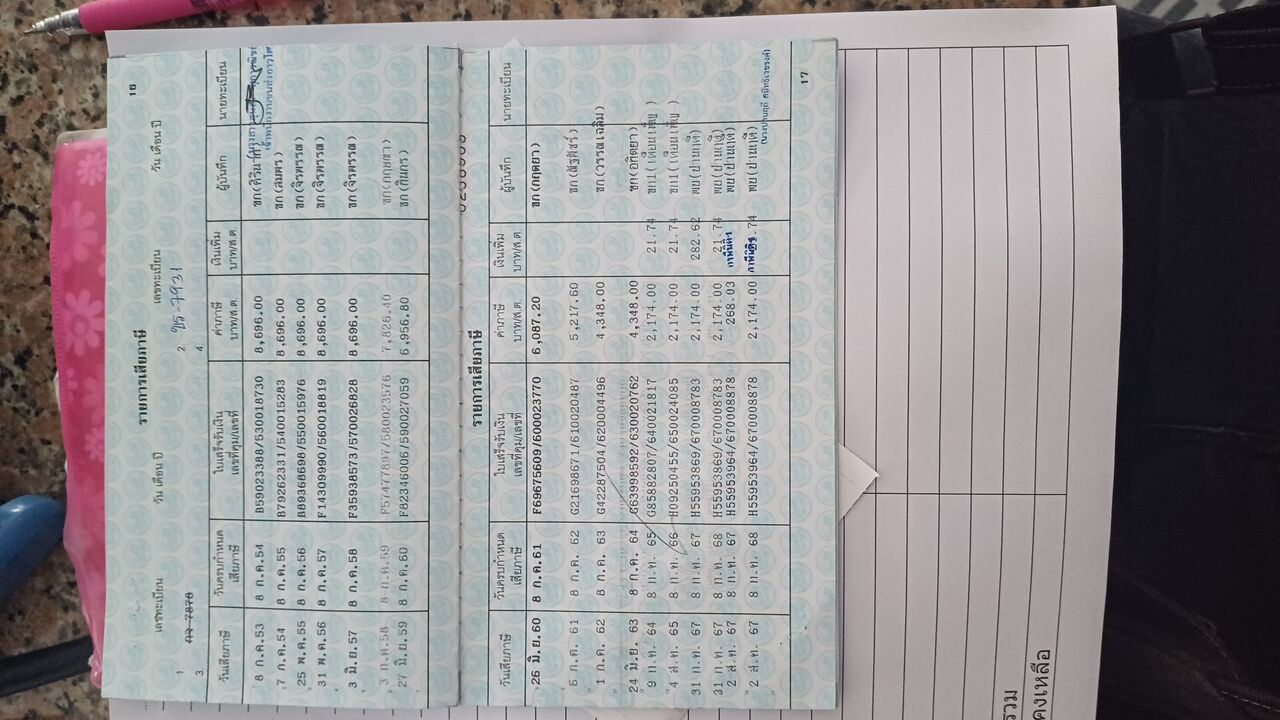 16
รายการเสียภาษี
เลขทะเบียน วัน เดือน ปี เลขทะเบียน วัน เดือน ปี
1. กจ 7870 2. ชร-7931
3. 4.
วันเสียภาษี วันครบกำหนดเสียภาษี ใบเสร็จรับเงิน เล่มที่คุม/เลขที่ ค่าภาษี บาท/ส.ต. เงินเพิ่ม บาท/ส.ต. ผู้บันทึก นายทะเบียน
8 ก.ค.53 8 ก.ค.54 B59023308/530018730 8,696.00
7 ก.ค.54 8 ก.ค.55 B79262331/540015283 8,696.00 ขก(สมพร)
25 พ.ค.55 8 ก.ค.56 B89368698/550015976 8,696.00 ขก(จิรพรรณ)
31 พ.ค.56 8 ก.ค.57 F14309990/560018819 8,696.00 ขก(จิรพรรณ)
3 มิ.ย.57 8 ก.ค.58 F35938573/570026828 8,696.00 ขก(จิรพรรณ)
3 ก.ค.58 8 ก.ค.59 F57477897/580023576 7,826.40 ขก(กฤตยา)
27 มิ.ย.59 8 ก.ค.60 F82346006/590027059 6,956.80 ขก(กันกร)
รายการเสียภาษี
วันเสียภาษี วันครบกำหนดเสียภาษี ใบเสร็จรับเงิน เล่มที่คุม/เลขที่ ค่าภาษี บาท/ส.ต. เงินเพิ่ม บาท/ส.ต. ผู้บันทึก นายทะเบียน
26 มิ.ย.60 8 ก.ค.61 F69675609/600023770 6,087.20 ขก(กฤตยา)
6 ก.ค. 61 8 ก.ค. 62 G21698671/610020487 5,217.60
1 ก.ค. 62 8 ก.ค. 63 G42287504/620004496 4,348.00 ขก(วรรณเฉลิม)
24 มิ.ย. 63 8 ก.ค. 64 G63998592/630020762 4,348.00
9 ก.ค. 64 8 ก.ค. 65 G85882807/640021817 2,174.00 21.74
4 ส.ค. 65 8 ก.ค. 66 H09250455/650024085 2,174.00 21.74
31 ก.ค. 67 8 ก.ค. 67 H55953869/670008783 2,174.00 282.62
31 ก.ค. 67 8 ก.ค. 68 H55953869/670008783 2,174.00 21.74
2 ส.ค. 67 8 ก.ค. 67 H55953964/670008878 268.03
2 ส.ค. 67 8 ก.ค. 68 H55953964/670008878 2,174.00
17
รวม
คงเหลือ